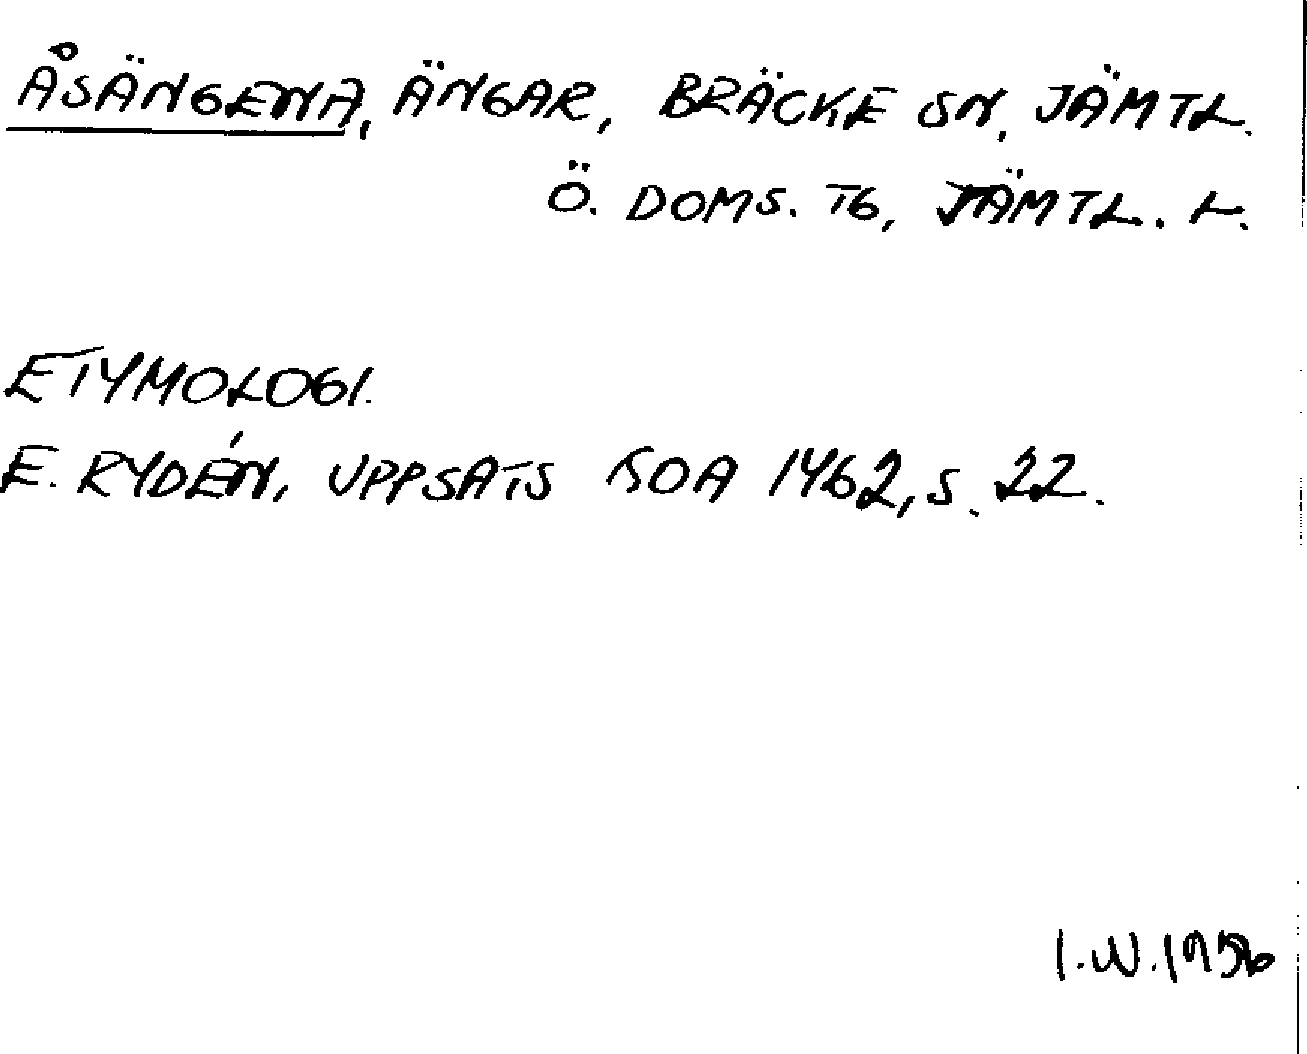 ÅSÄNGENA, ÄNGAR, BRÄCKE SN, JÄMTL.
Ö. DOMS. TG, JÄMTL. L.
ETYMOLOGI.
E. RYDÉN, UPPSATS SOA 1462, S. 22.
I.W. 1956